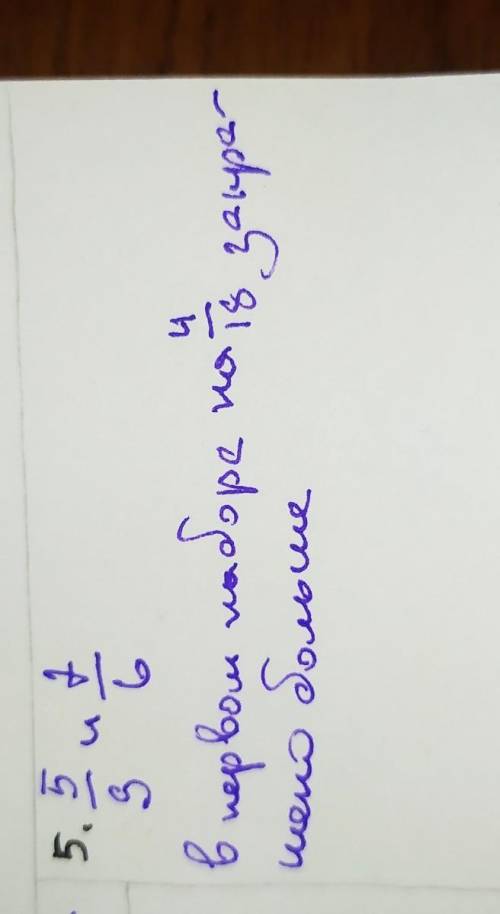 5. 5/9 и 1/6
в первом наборе на 4/18 закра-
шено больше